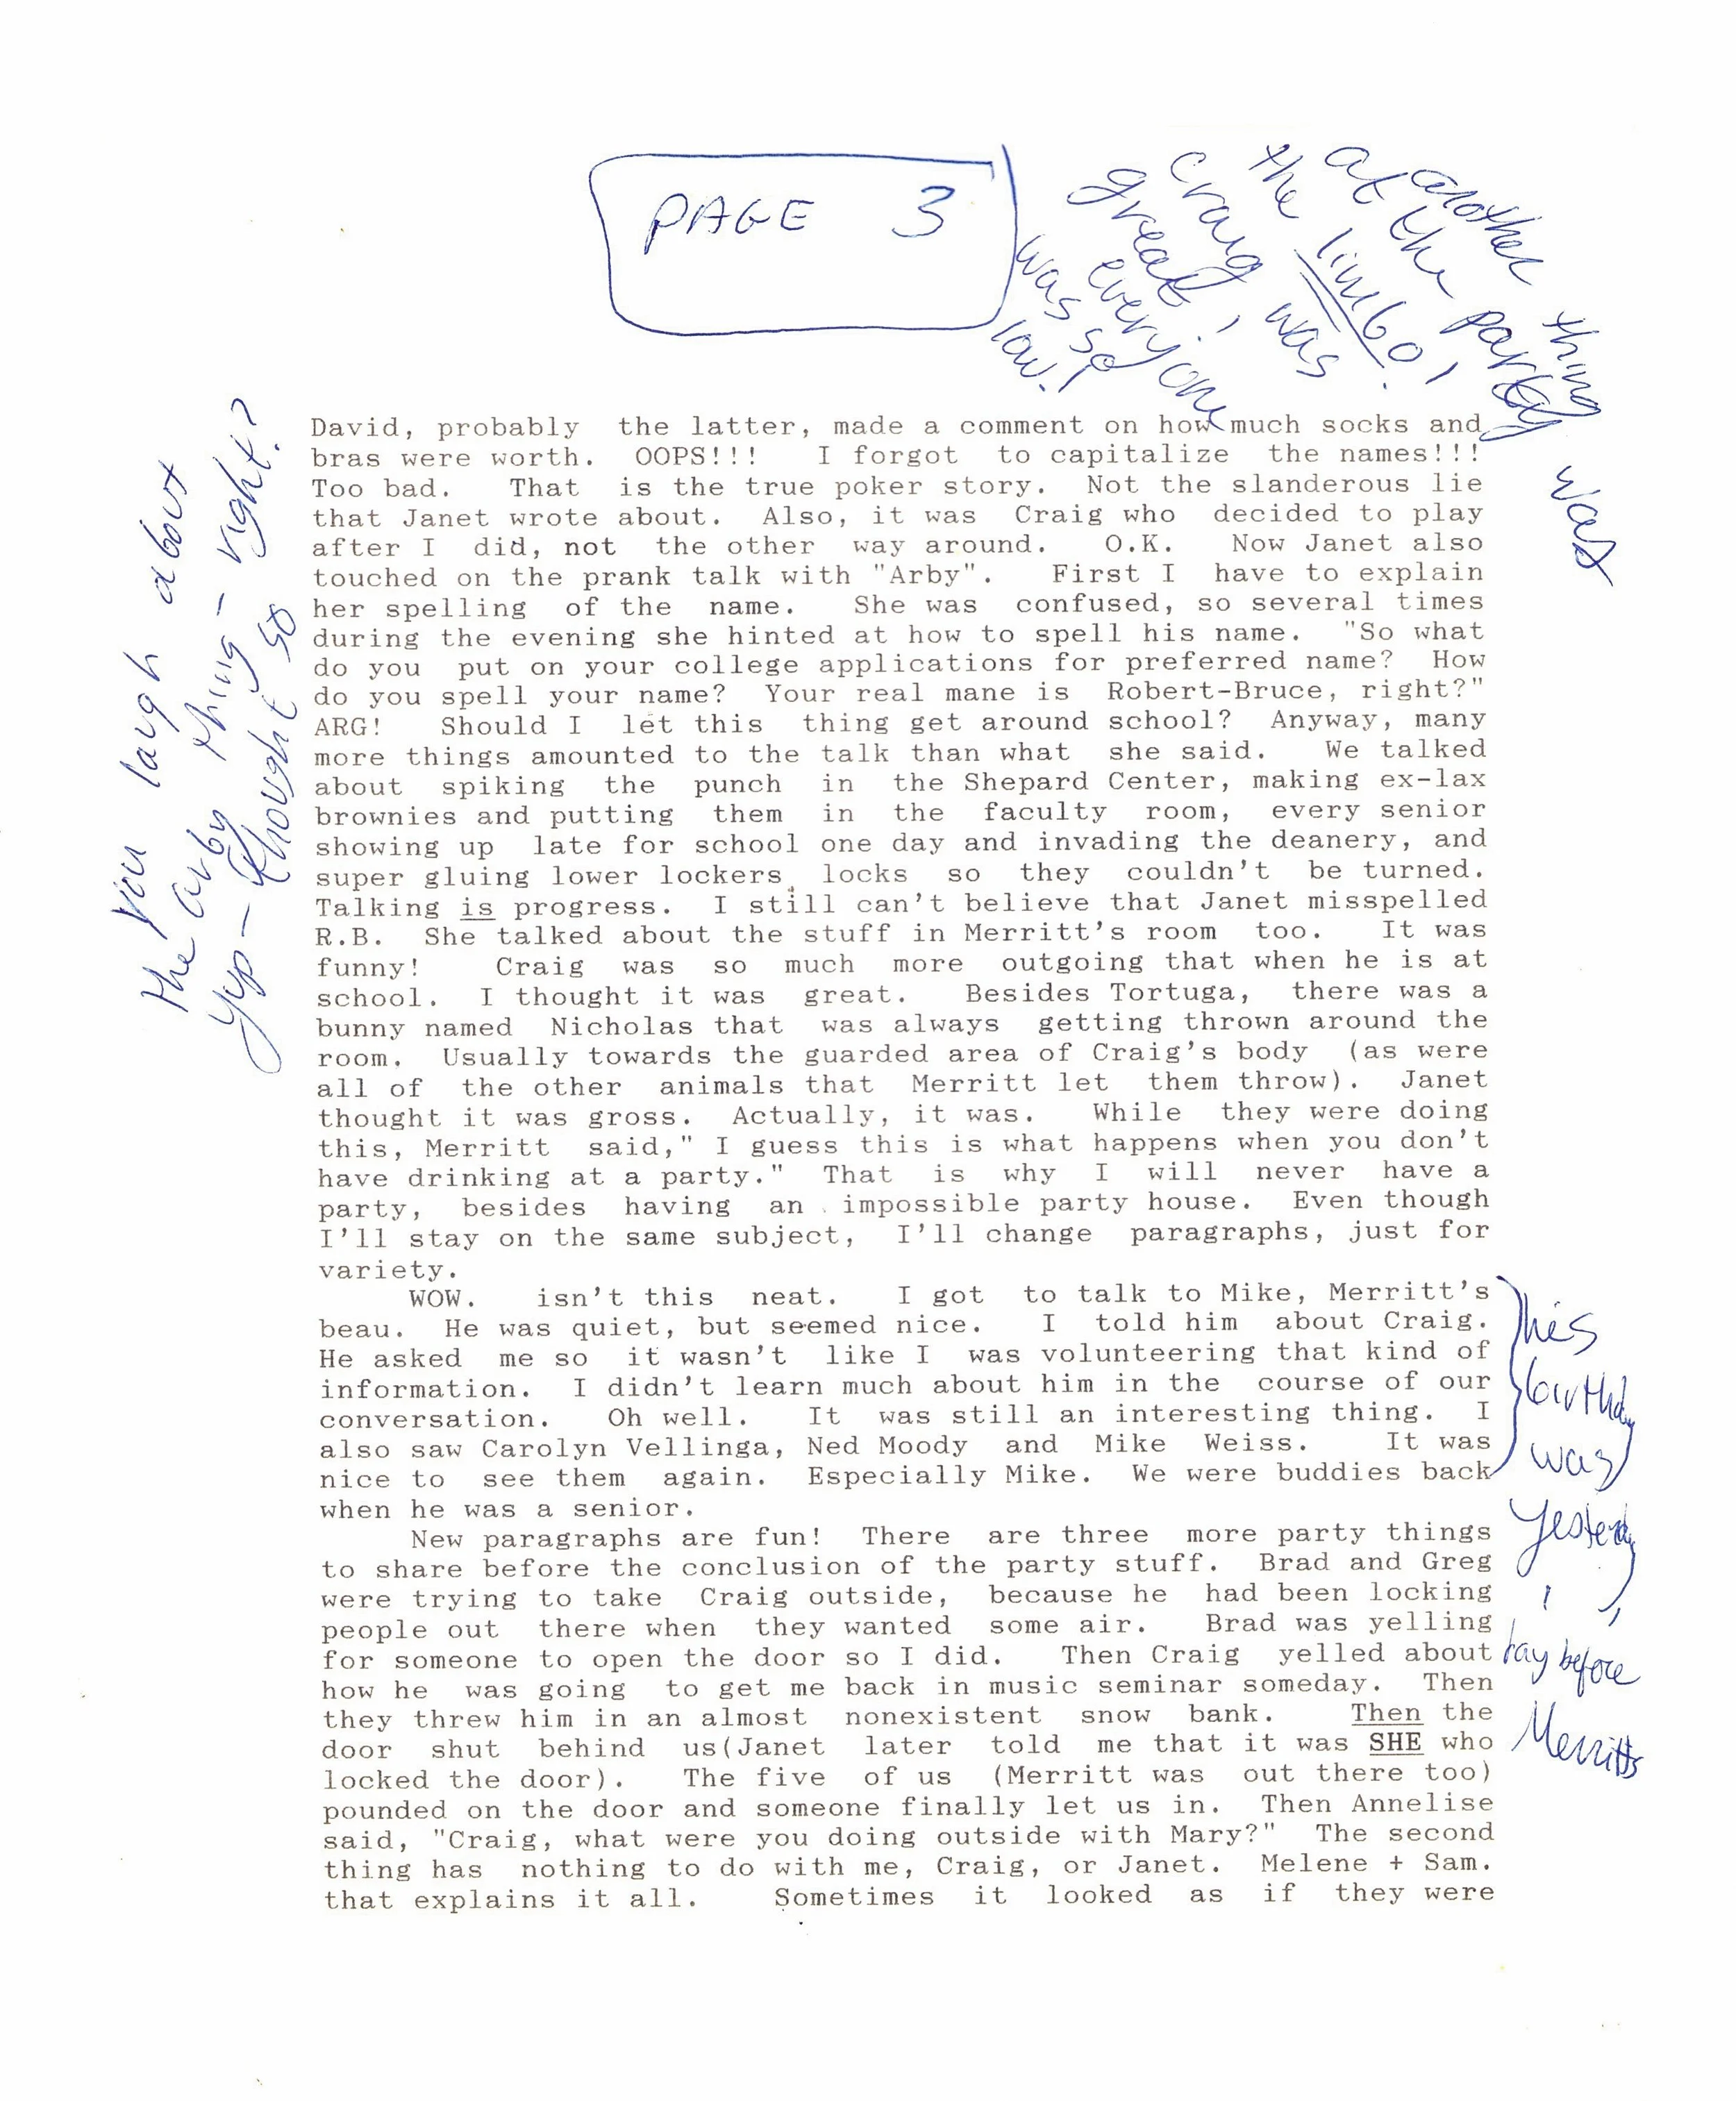 PAGE 3
another thing was
at the party
the limbo!
Craig was
great!
everyone
was so
low!
David, probably the latter, made a comment on how much socks and
bras were worth. OOPS!!! I forgot to capitalize the names!!!
Too bad. That is the true poker story. Not the slanderous lie
that Janet wrote about. Also, it was Craig who decided to play
after I did, not the other way around. O.K. Now Janet also
touched on the prank talk with "Arby". First I have to explain
her spelling of the name. She was confused, so several times
during the evening she hinted at how to spell his name. "So what
do you put on your college applications for preferred name? How
do you spell your name? Your real mane is Robert-Bruce, right?"
ARG! Should I let this thing get around school? Anyway, many
more things amounted to the talk than what she said. We talked
about spiking the punch in the Shepard Center, making ex-lax
brownies and putting them in the faculty room, every senior
showing up late for school one day and invading the deanery, and
super gluing lower lockers, locks so they couldn't be turned.
Talking is progress. I still can't believe that Janet misspelled
R.B. She talked about the stuff in Merritt's room too. It was
funny! Craig was so much more outgoing that when he is at
school. I thought it was great. Besides Tortuga, there was a
bunny named Nicholas that was always getting thrown around the
room. Usually towards the guarded area of Craig's body (as were
all of the other animals that Merritt let them throw). Janet
thought it was gross. Actually, it was. While they were doing
this, Merritt said," I guess this is what happens when you don't
have drinking at a party." That is why I will never have a
party, besides having an impossible party house. Even though
I'll stay on the same subject, I'll change paragraphs, just for
variety.
WOW. isn't this neat. I got to talk to Mike, Merritt's
beau. He was quiet, but seemed nice. I told him about Craig.
He asked me so it wasn't like I was volunteering that kind of
information. I didn't learn much about him in the course of our
conversation. Oh well. It was still an interesting thing. I
also saw Carolyn Vellinga, Ned Moody and Mike Weiss. It was
nice to see them again. Especially Mike. We were buddies back
when he was a senior.
New paragraphs are fun! There are three more party things
to share before the conclusion of the party stuff. Brad and Greg
were trying to take Craig outside, because he had been locking
people out there when they wanted some air. Brad was yelling
for someone to open the door so I did. Then Craig yelled about
how he was going to get me back in music seminar someday. Then
they threw him in an almost nonexistent snow bank. Then the
door shut behind us(Janet later told me that it was SHE who
locked the door). The five of us (Merritt was out there too)
pounded on the door and someone finally let us in. Then Annelise
said, "Craig, what were you doing outside with Mary?" The second
thing has nothing to do with me, Craig, or Janet. Melene + Sam.
that explains it all. Sometimes it looked as if they were
you laugh about
the arby thing - right?
Yup - thought so
his
birthday
was
yesterday
!
day before
Merritts